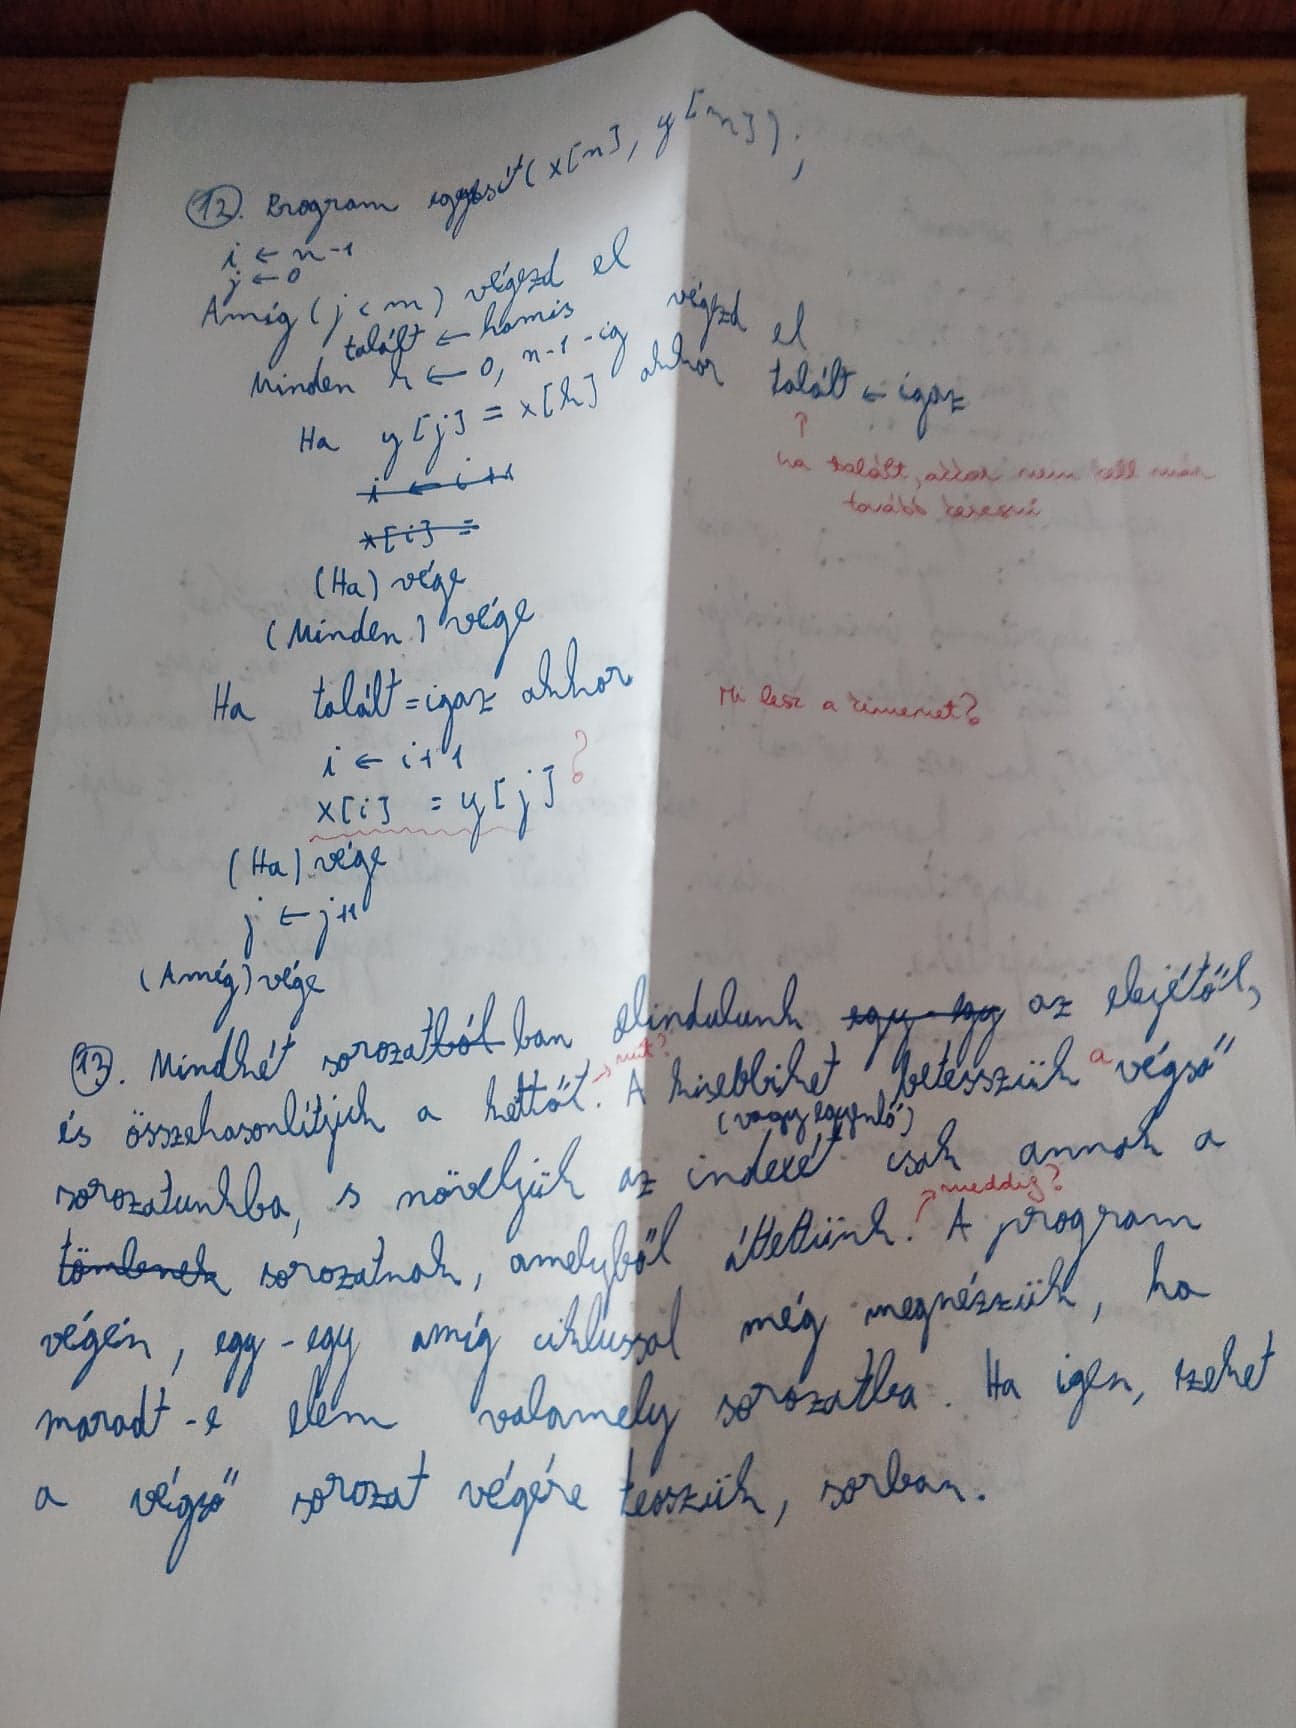 12. Program egyesít(x[n], y[m]);
i ← n-1
j ← 0
Amíg (j < m) végezd el
talált ← hamis
Minden k ← 0, n-1-ig végezd el
Ha y[j] = x[k] akkor talált ← igaz
↑
ha talált, akkor nem kell már
tovább keresni
i ← i+1
x[i] =
(Ha) vége
(Minden) vége
Ha talált = igaz akkor
Mi lesz a kimenet?
i ← i+1
x[i] = y[j] ?
(Ha) vége
j ← j+1
(Amíg) vége
13. Mindkét sorozatból ban elindulunk egy-egy az elejétől,
→ mit? a
és összehasonlítjuk a kettőt. A kisebbiket betesszük végső
(vagy egyenlő)
sorozatunkba, s növeljük az indexét csak annak a
→ meddig?
tömbnek sorozatnak, amelyből áttettünk. A program
végén, egy-egy amíg ciklussal még megnézzük, ha
maradt-e elem valamely sorozatba. Ha igen, ezeket
a végső sorozat végére tesszük, sorban.